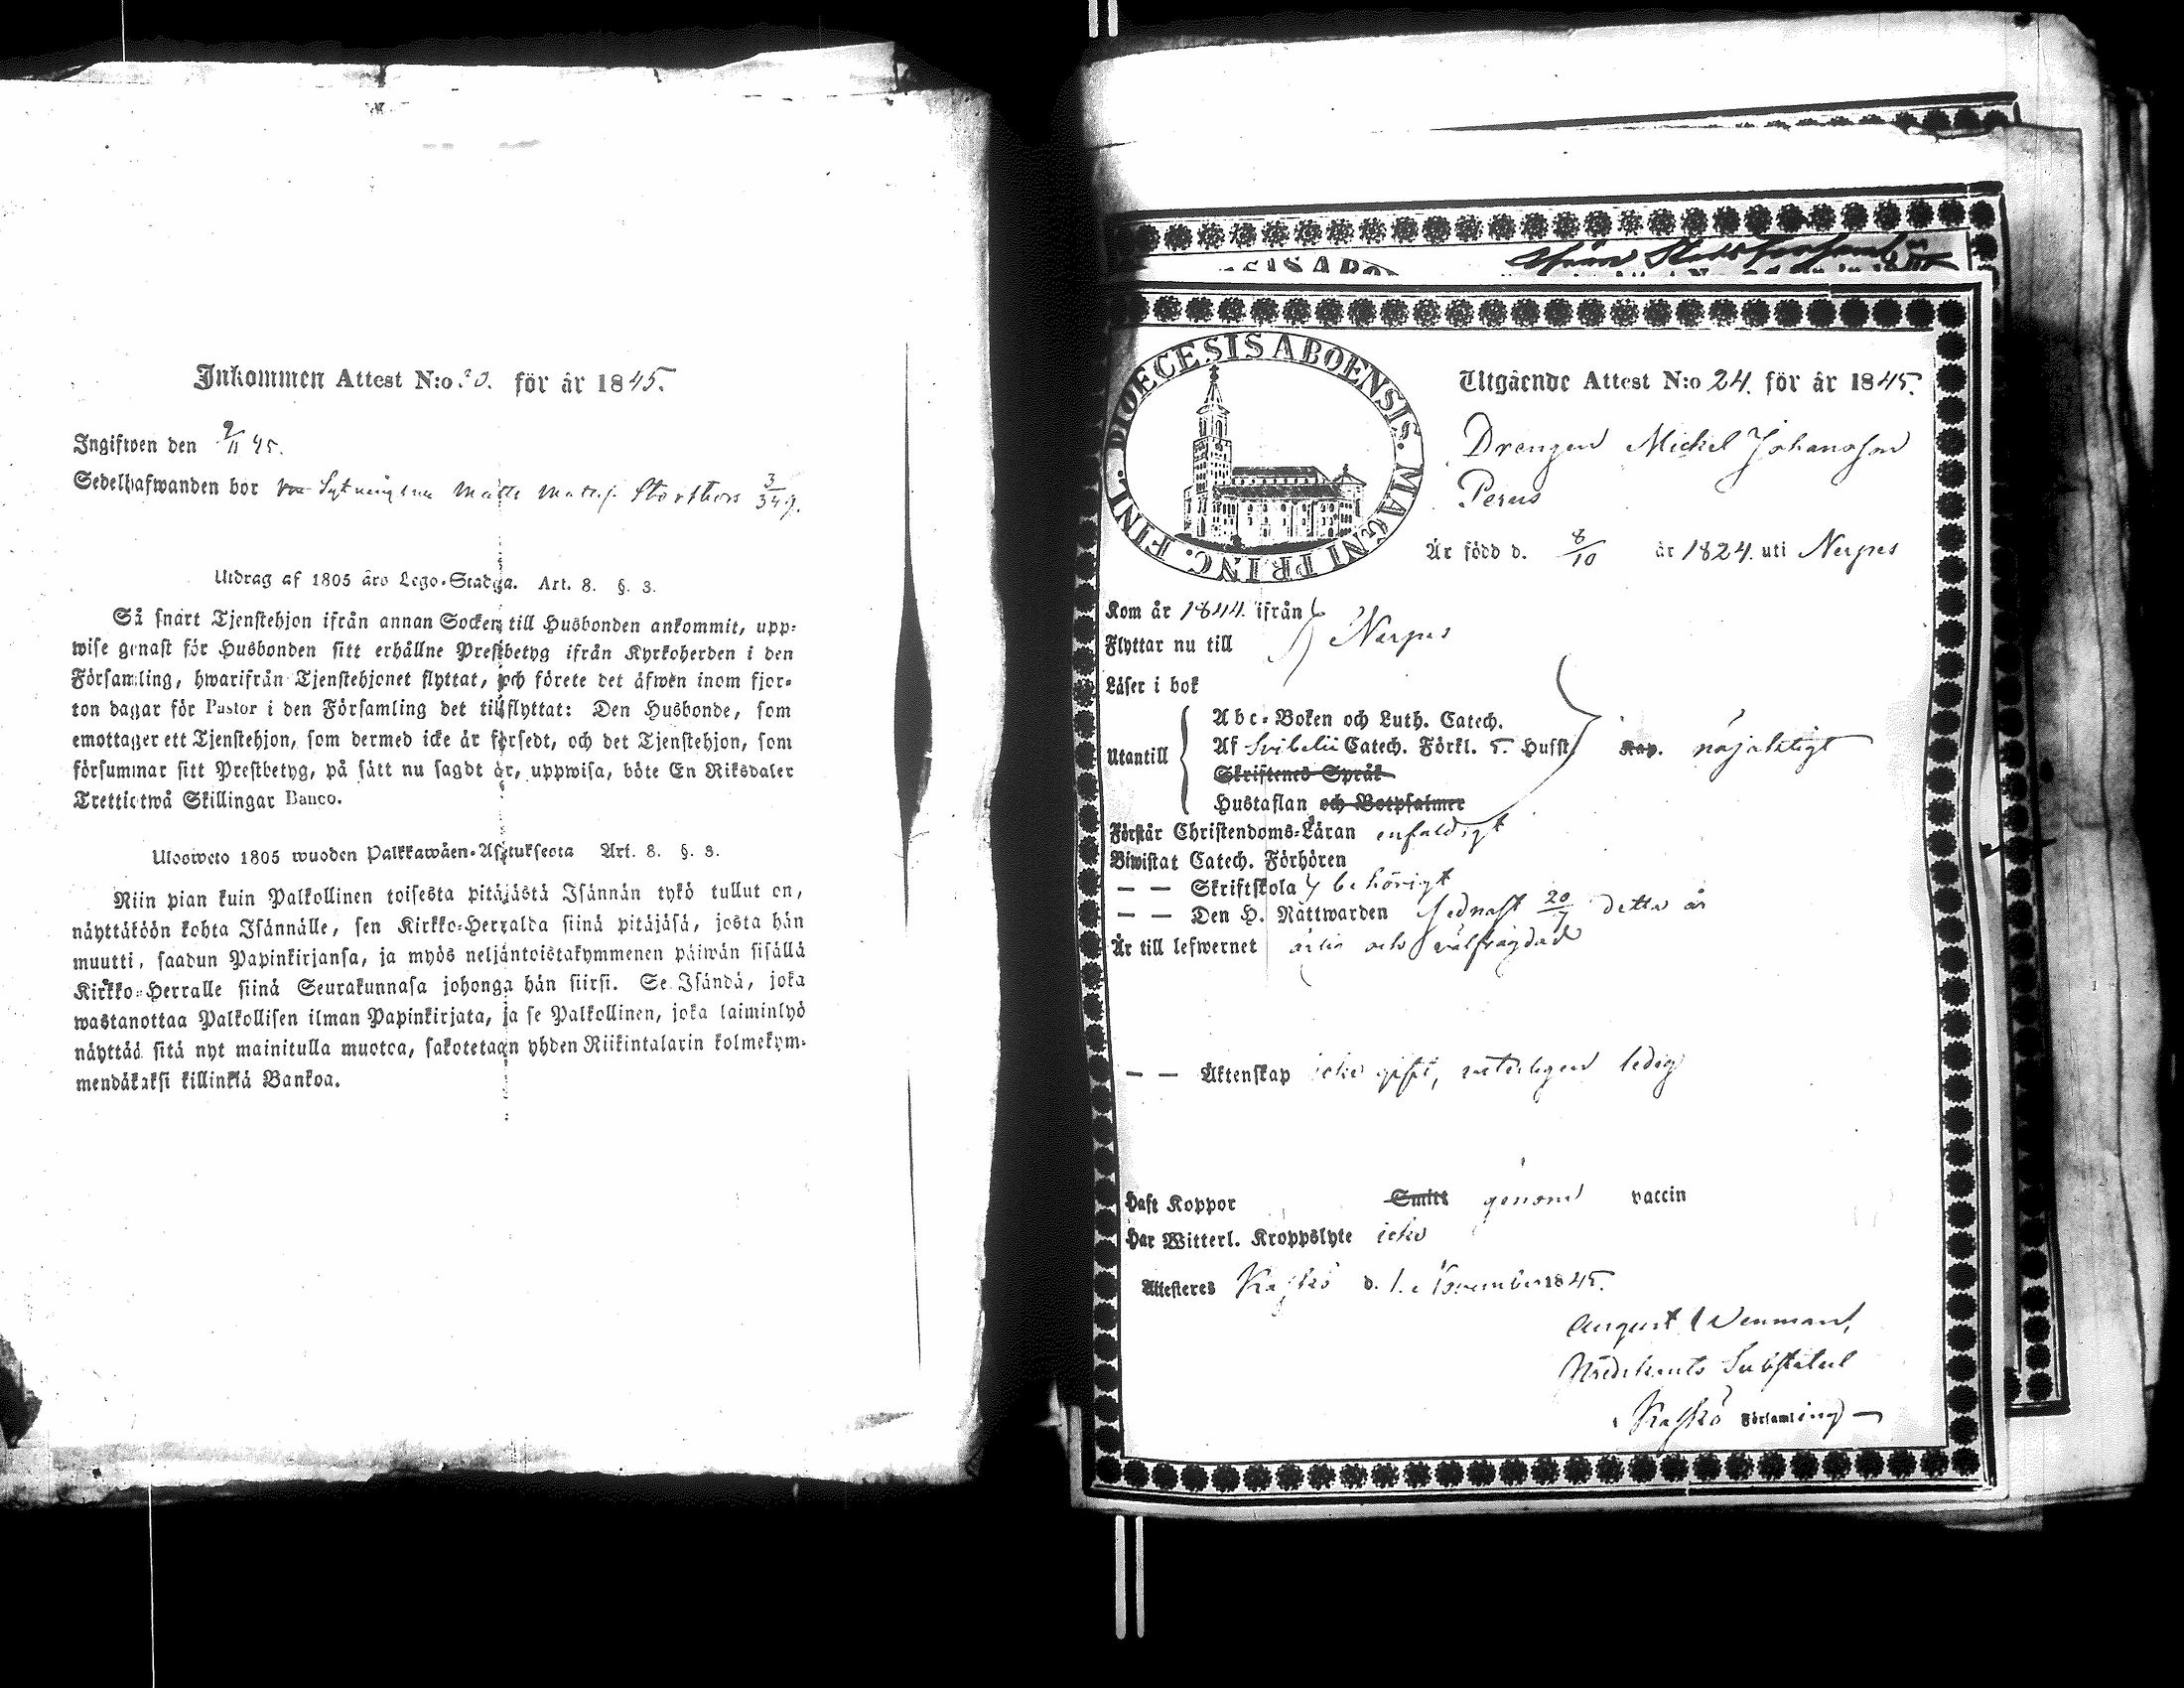 Inkommen Attest N:o 30. för år 1845.
Ingifwen den 9/11 45.
Sedelhafwanden bor Matts Matts. Storthors 3/349.
Utdrag af 1805 års Lego-Stadga. Art. 8. §. 3.
Så snart Tjenstehjon ifrån annan Socken till Husbonden ankommit, upp-
wise genast för Husbonden sitt erhållne Prestbetyg ifrån Kyrkoherden i den
Församling, hwarifrån Tjenstehjonet flyttat, och förete det äfwen inom fjor-
ton dagar för Pastor i den Församling det tillflyttat: Den Husbonde, som
emottager ett Tjenstehjon, som dermed icke är försedt, och det Tjenstehjon, som
försummar sitt Prestbetyg, på sätt nu sagdt är, uppwisa, böte En Riksdaler
Trettiotwå Skillingar Banco.
Ulosweto 1805 wuoden Palkkawäen-Asetuksesta Art. 8. §. 3.
Niin pian kuin Palkollinen toisesta pitäjästä Isännän tykö tullut on,
näyttäköön kohta Isännälle, sen Kirkko-Herralda siinä pitäjäsä, josta hän
muutti, saadun Papinkirjansa, ja myös neljäntoistakymmenen päiwän sisällä
Kirkko-Herralle siinä Seurakunnasa johonga hän siirsi. Se Isändä, joka
wastanottaa Palkollisen ilman Papinkirjata, ja se Palkollinen, joka laiminlyö
näyttää sitä nyt mainitulla muotoa, sakotetaan yhden Riikintalarin kolmekym-
mendäkaksi killinkiä Bankoa.
DIOECESIS ABOENSIS. MAGNI PRINC. FINL.
Utgående Attest N:o 24. för år 1845.
Drengen Mickel Johansson
Perus
Är född d. 8/10 år 1824. uti Nerpes
Kom år 1844. ifrån
Flyttar nu till Nerpes
Läser i bok
Utantill
Abc-Boken och Luth. Catech.
Af Svibelii Catech. Förkl. 5. Hufst. Kap. nöjaktigt
Skriftenes Språk
Hustaflan och Botpsalmer
Förstår Christendoms-Läran enfaldigt
Biwistat Catech. Förhören
— — Skriftskola behörigt
— — Den H. Nattwarden sednast 20/7 detta år
Är till lefwernet ärlig och välfrägdad
— — Äktenskap icke gift, veterligen ledig
Haft Koppor Smitt genom vaccin
Har Witterl. Kroppslyte icke
Attesteras Kaskö d. 1. November 1845.
August Wenman,
Prédikants Substitut
i Kaskö Församling —